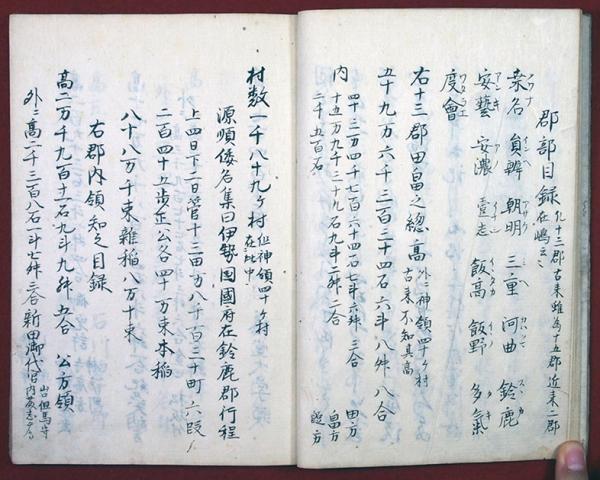 郡部目録 凡十三郡古来雖為十五郡近来二郡
在嶋々
桑名 員辨 朝明 三重 河曲 鈴鹿
安藝 安濃 壹志 飯高 飯野 多氣
度會
右十三郡田畠之總高 外ニ神領四十ヶ村
古来不知其高
五十九万六千三百三十四石六斗八舛八合
内 四十三万四千七百六十四石七斗六舛三合 田方
十五万九千三十九石九斗二舛二合 畠方
二千五百石
村数一千八十九ヶ村 但神領四十ヶ村
在此中
源順倭名集曰伊勢国國府在鈴鹿郡行程
上四日下二日管十三田万八千百三十町六段
二百四十五歩正公各四十万束本稲
八十八万千束雜稲八万十束
右郡内領知之目録
高二万千九百十一石九斗九舛五合 公方領
外ニ高二千三百八石一斗七舛二合新田御代官